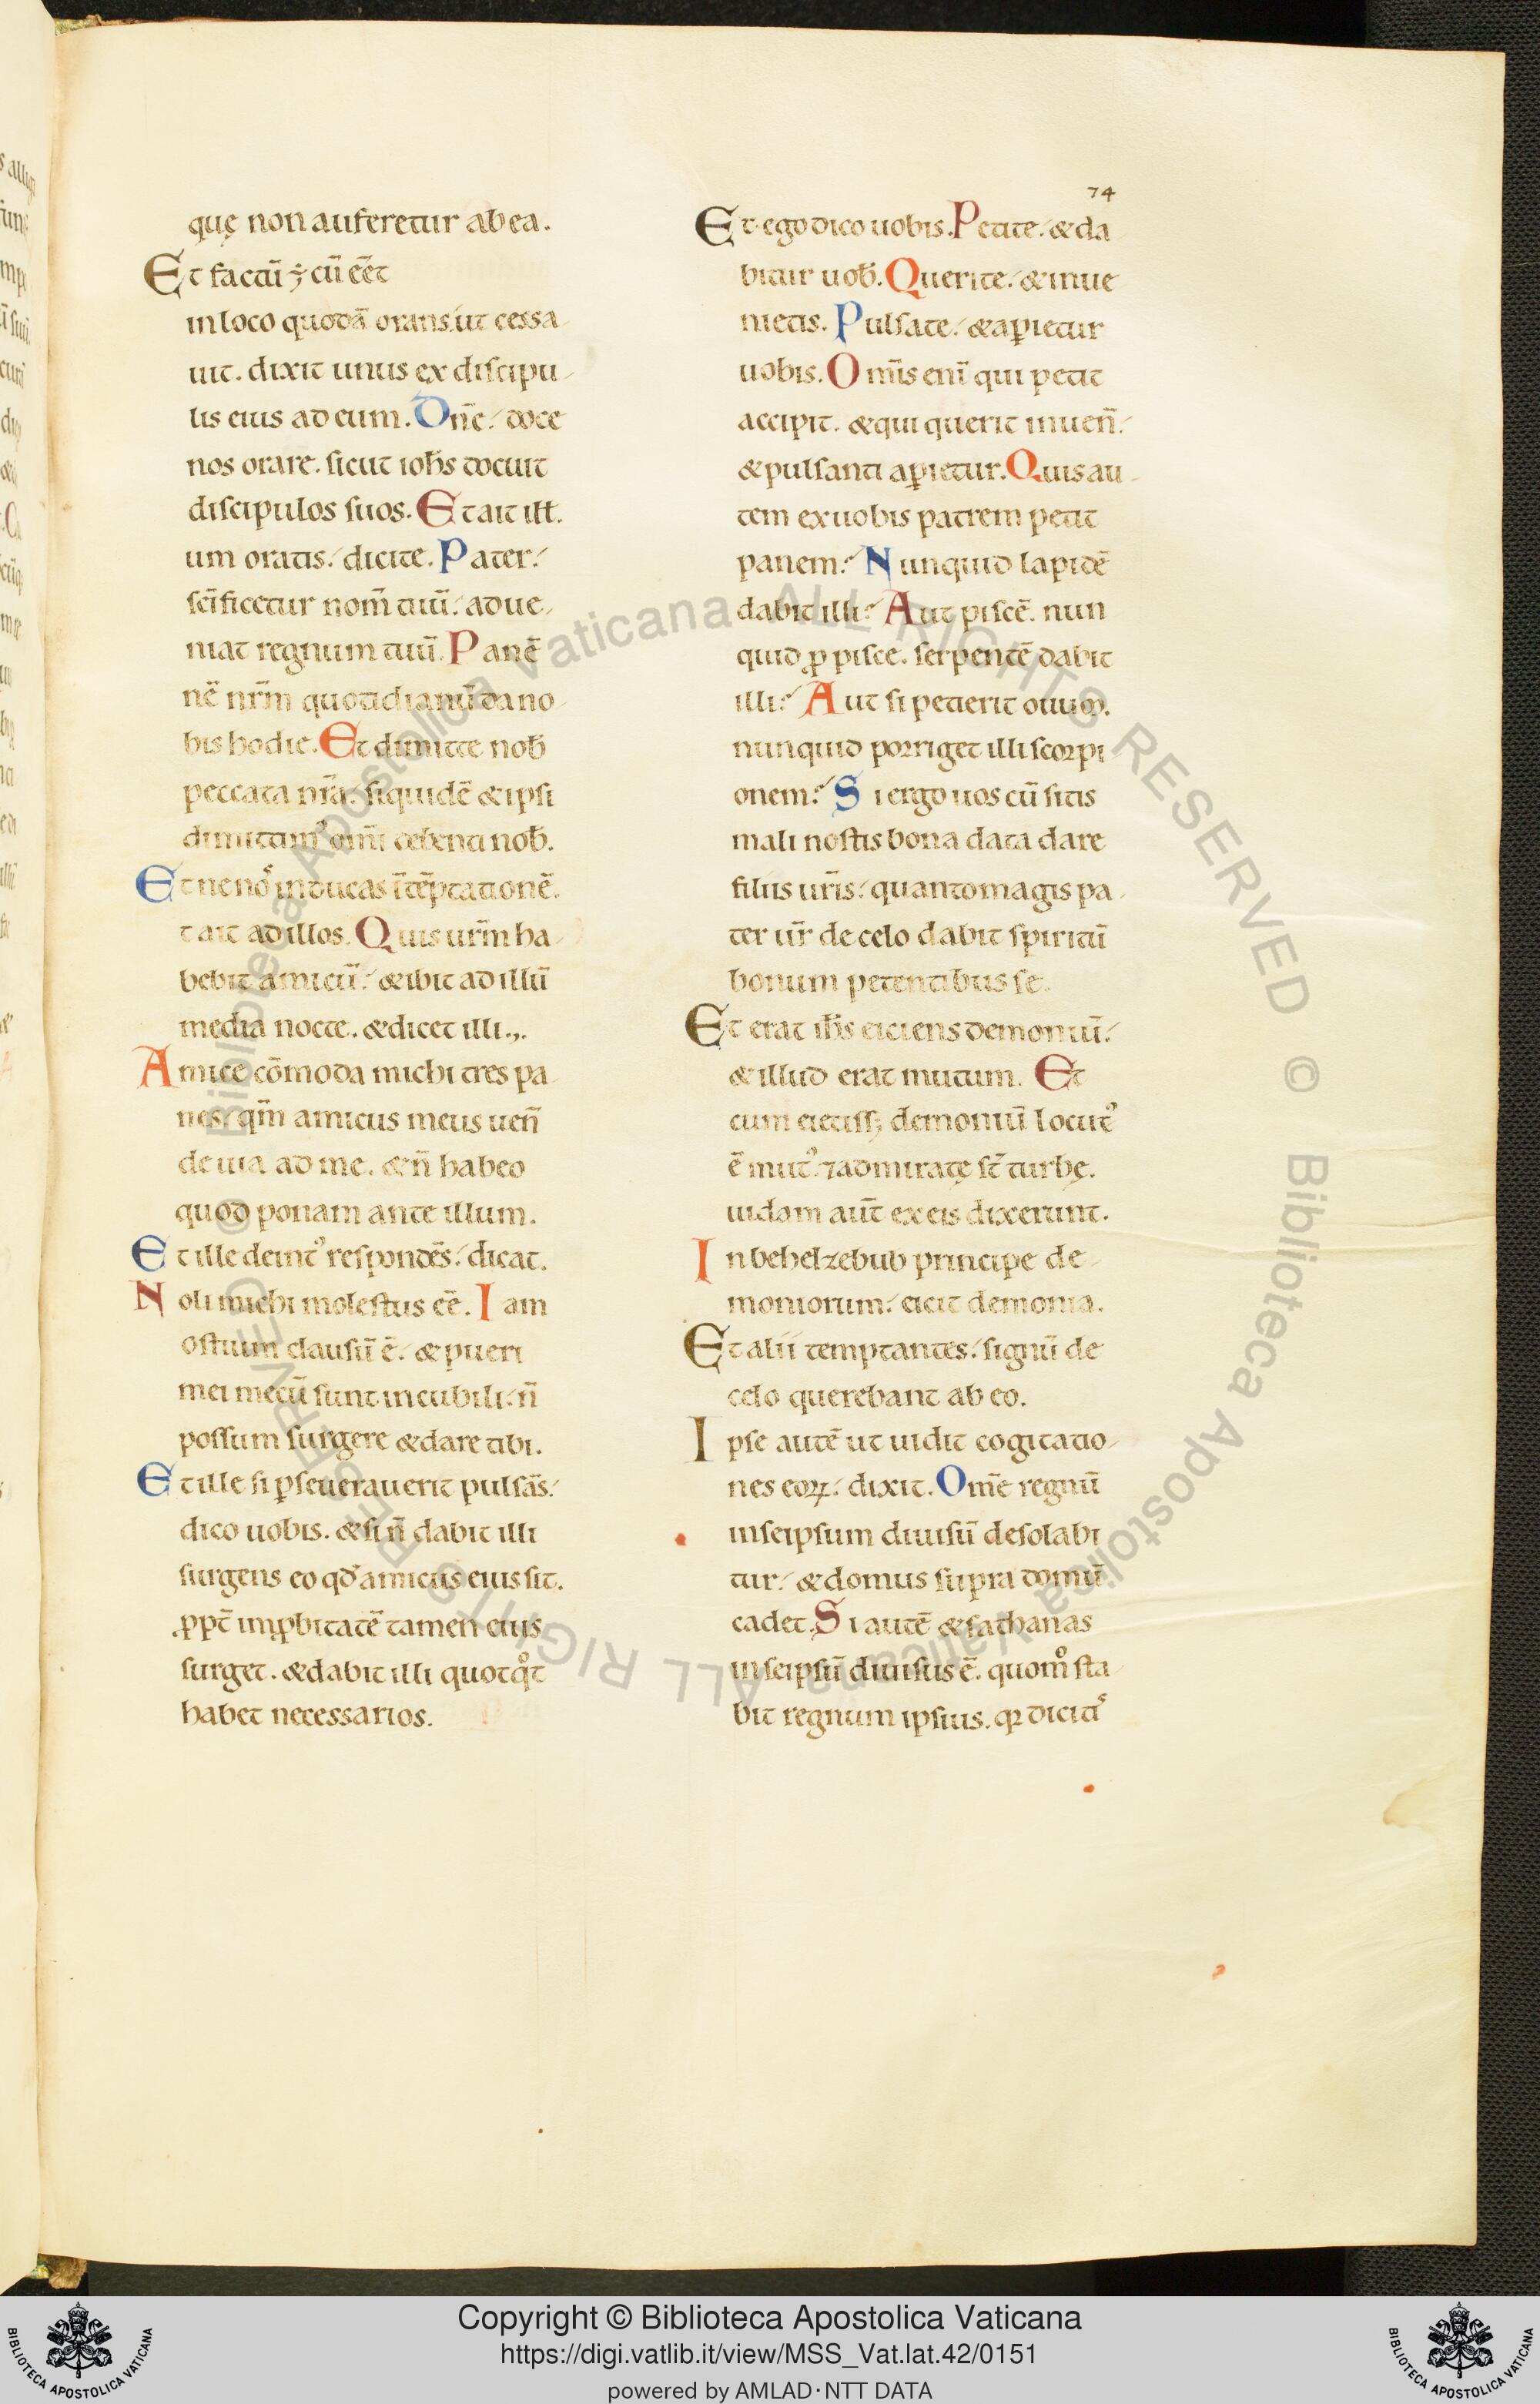 74
quę non auferetur ab ea.
Et factū ē cū eēt
in loco quodā orans. ut cessa-
uit. dixit unus ex discipu-
lis eius ad eum. Dn̄e doce
nos orare. sicut ioħs docuit
discipulos suos. Et ait ill̄.
um oratis dicite. Pater
sc̄ificetur nom̄ tuū adue-
niat regnum tuū. Panē
nē nr̄m quotidianū da no-
bis hodie. Et dimitte nob̄
peccata nr̄a. siquidē & ipsi
dimittim᾿ om̄i debenti nob̄.
Et ne nos inducas ī tēptationē.
t ait ad illos. Quis ur̄m ha-
bebit amicū & ibit ad illū
media nocte. & dicet illi.,.
Amice cōmoda michi tres pa-
nes qm̄ amicus meus ueñ
de uia ad me. & ñ habeo
quod ponam ante illum.
Et ille deint᾿ respondēs dicat.
Noli michi molestus eē. Iam
ostium clausū ē. & pueri
mei mecū sunt in cubili ñ
possum surgere & dare tibi.
Et ille si ꝑseuerauerit pulsās
dico uobis. & si ñ dabit illi
surgens eo qd̄ amicus eius sit.
ꝓpt̄ imꝓbitatē tamen eius
surget. & dabit illi quotqͦt
habet necessarios.
Et ego dico uobis. Petite & da
bitur uob̄. Querite & inue
nietis. Pulsate & aꝑietur
uobis. Om̄is enī qui petit
accipit. & qui querit inueñ
& pulsanti aꝑietur. Quis au-
tem ex uobis patrem petit
panem? Nunquid lapidē
dabit illi? Aut piscē. nun
quid ꝓ pisce. serpentē dabit
illi? Aut si petierit ouum.
nunquid porriget illi scorpi-
onem? Si ergo uos cū sitis
mali nostis bona data dare
filiis ur̄is quanto magis pa-
ter ur̄ de celo dabit spiritū
bonum petentibus se.
Et erat iħs eiciens demoniū
& illud erat mutum. Et
cum eiecissꝫ demoniū locut᾿
ē mut᾿ ⁊ admiratę st̄ turbę.
uidam aut̄ ex eis dixerunt.
In behelzebub principe de-
moniorum eicit demonia.
Et alii temptantes signū de
celo querebant ab eo.
Ipse autē ut uidit cogitatio-
nes eoꝝ dixit. Om̄e regnū
in seipsum diuisū desolabi
tur & domus supra domū
cadet. Si autē & sathanas
in seipsū diuisus ē. quomͦ sta-
bit regnum ipsius. qꝛ dicit᾿
Copyright © Biblioteca Apostolica Vaticana
https://digi.vatlib.it/view/MSS_Vat.lat.42/0151
powered by AMLAD·NTT DATA
BIBLIOTECA APOSTOLICA VATICANA
BIBLIOTECA APOSTOLICA VATICANA
© Biblioteca Apostolica Vaticana ALL RIGHTS RESERVED © Biblioteca Apostolica Vaticana ALL RIGHTS RESERVED